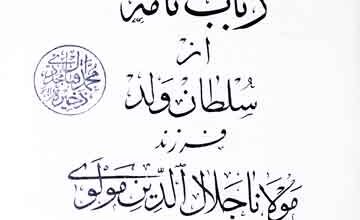 رباب نامه
از
سُلطان وَلَد
فرزند
مَولانا جلال الدّین مَولَوی